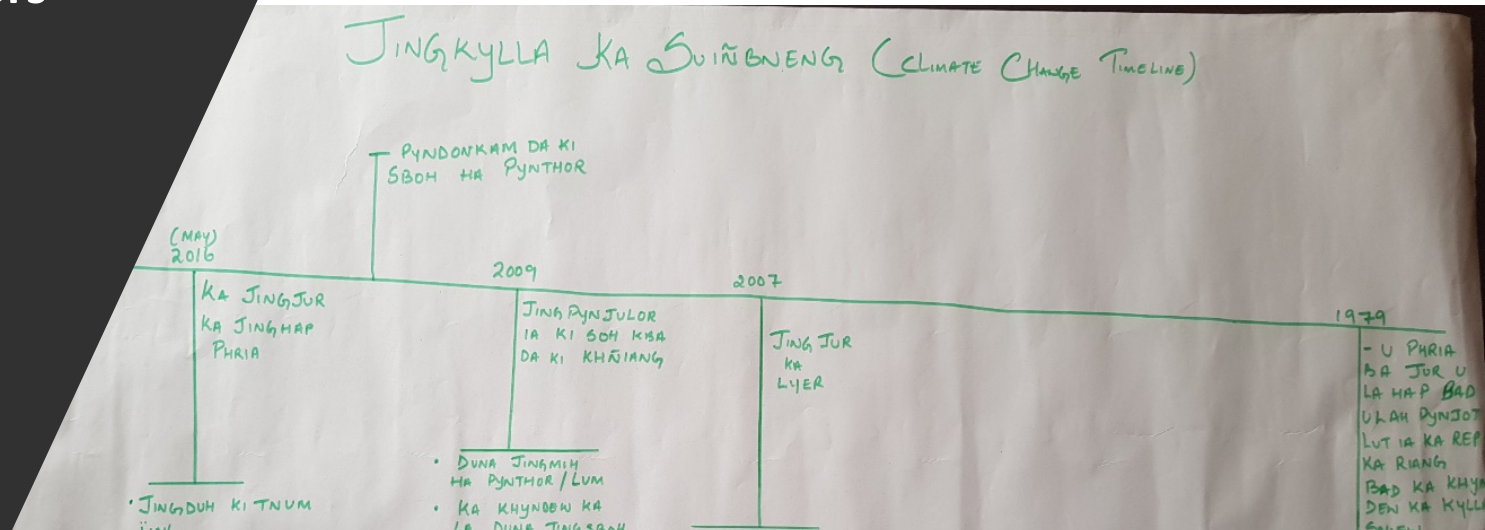 JINGKYLLA KA SUIÑBNENG (CLIMATE CHANGE TIMELINE)
PYNDONKAM DA KI
SBOH HA PYNTHOR
(MAY)
2016
KA JINGJUR
KA JINGHAP
PHRIA
• JINGDUH KI TNUM
2009
JINGPYNJULOR
IA KI SOH KBA
DA KI KHÑIANG
• DUNA JINGMIH
HA PYNTHOR/LUM
• KA KHYNDEW KA
LA DUNA JINGSBOH
2007
JING JUR
KA
LYER
1979
- U PHRIA
BA JUR U
LA HAP BAD
ULAH PYNJOT
LUT IA KA REP
KA RIANG
BAD KA
DEN KA